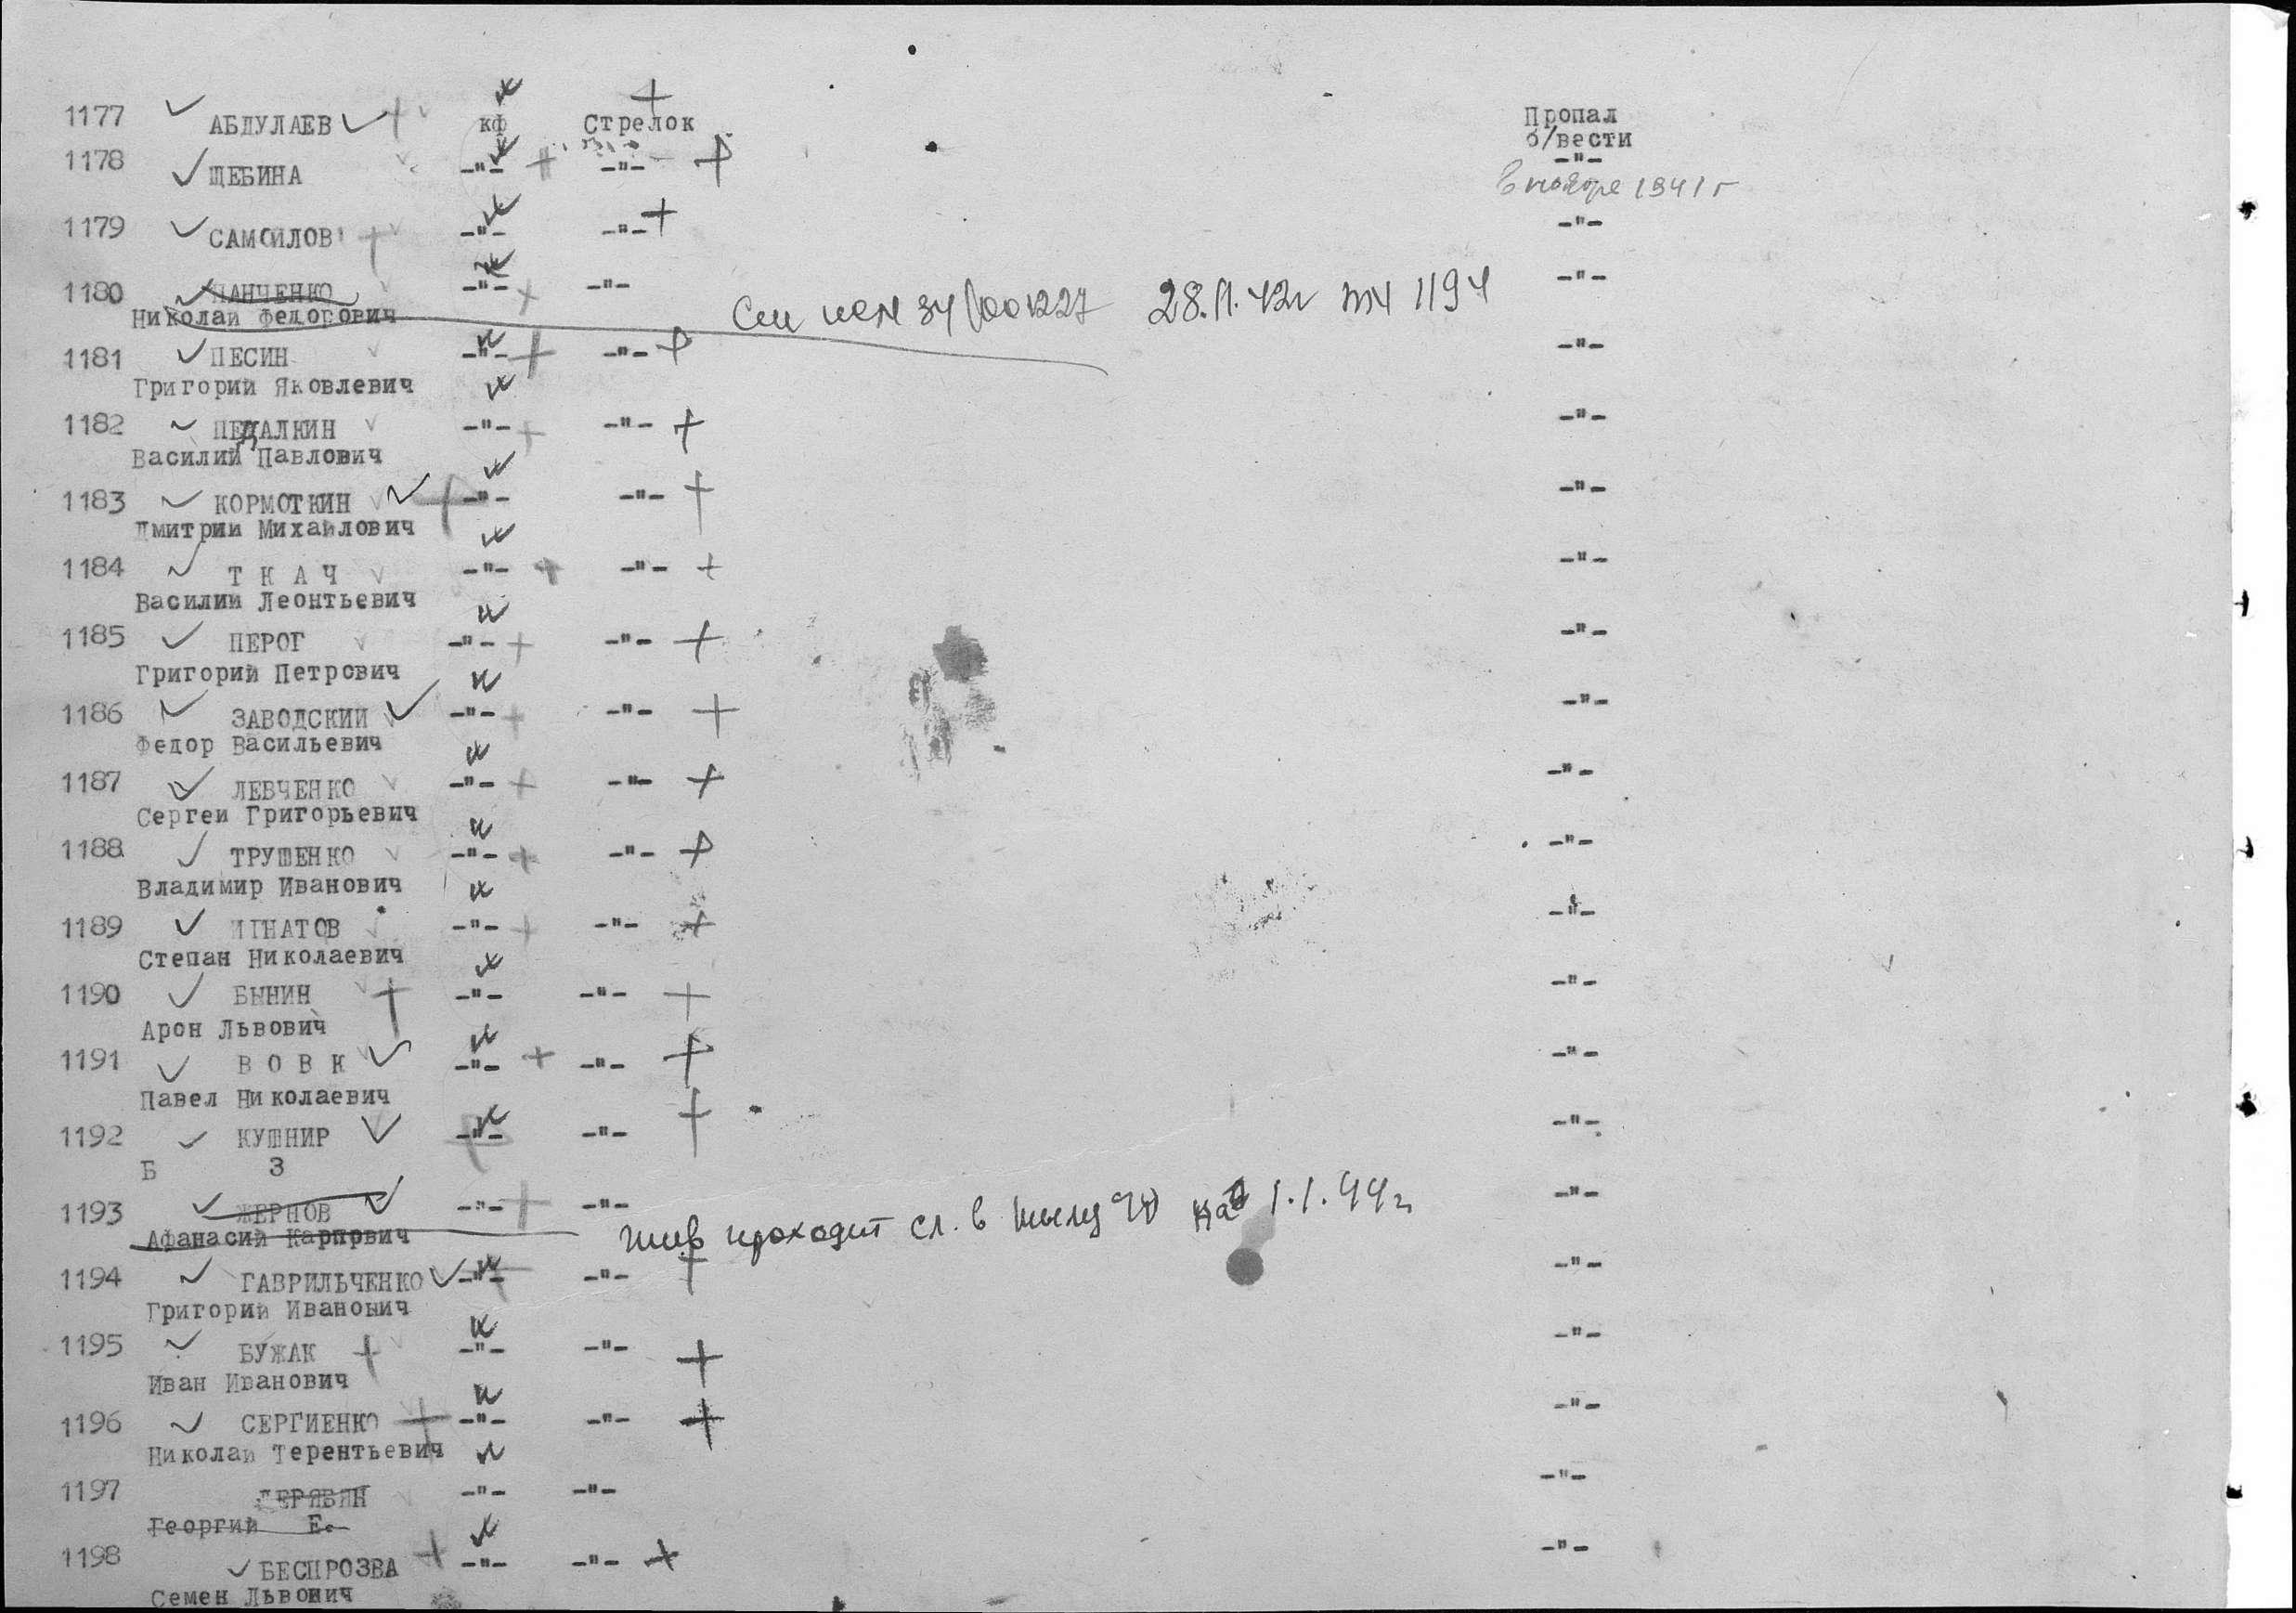 1177 АБДУЛАЕВ кф Стрелок Пропал
б/вести
1178 ЩЕБИНА -"- -"- -"-
в ноябре 1941 г
1179 САМОИЛОВ -"- -"- -"-
1180 ПАНЧЕНКО -"- -"- -"-
Николай Федорович 28.11.42г 1194
1181 ПЕСИН -"- -"- -"-
Григорий Яковлевич
1182 ПЕДАЛКИН -"- -"- -"-
Василий Павлович
1183 КОРМОТКИН -"- -"- -"-
Дмитрии Михайлович
1184 Т К А Ч -"- -"- -"-
Василии Леонтьевич
1185 ПЕРОГ -"- -"- -"-
Григорий Петрович
1186 ЗАВОДСКИИ -"- -"- -"-
Федор Васильевич
1187 ЛЕВЧЕНКО -"- -"- -"-
Сергеи Григорьевич
1188 ТРУШЕНКО -"- -"- -"-
Владимир Иванович
1189 ИГНАТОВ -"- -"- -"-
Степан Николаевич
1190 БЫНИН -"- -"- -"-
Арон Львович
1191 В О В К -"- -"- -"-
Павел Николаевич
1192 КУШНИР -"- -"- -"-
Б З
1193 ЖЕРНОВ -"- -"- -"-
Афанасий Карпович жив проходит сл. в тылу на 1.1.44г
1194 ГАВРИЛЬЧЕНКО -"- -"- -"-
Григорий Иванович
1195 БУЖАК -"- -"- -"-
Иван Иванович
1196 СЕРГИЕНКО -"- -"- -"-
Николаи Терентьевич
1197 ДЕРЯБИН -"- -"- -"-
Георгий Е.
1198 БЕСПРОЗВА -"- -"- -"-
Семен Львович